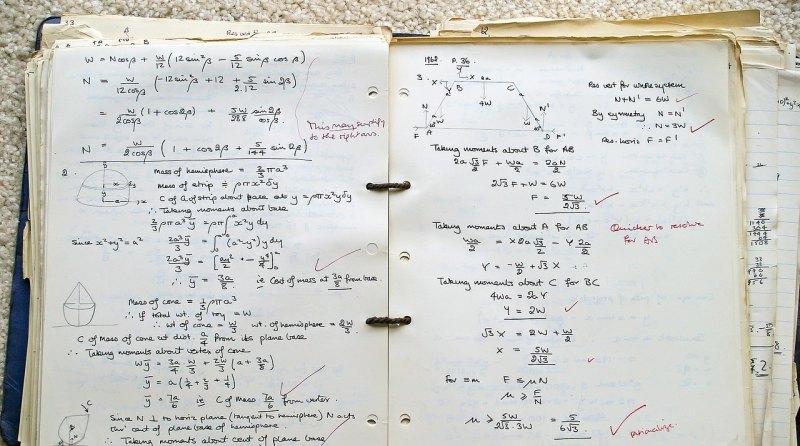 33
W = Ncosβ + W/12 (12 sin²β − 5/12 sinβ cosβ)
N = W/12cosβ (−12 sin²β + 12 + 5/2.12 sin 2β)
= W/2cosβ (1 + cos2β) + 5W/288 sin2β/cosβ.
This may simplify to the right ans.
N = W/2cosβ (1 + cos2β + 5/144 sin 2β)
2.
Mass of hemisphere = 2/3 πρa³
Mass of strip = ρπx²δy
C of G of strip about base as y = ρπx²yδy
∴ Taking moments about base
2/3 ρπa³ȳ = ρπ∫x²y dy
since x²+y² = a²
2a³ȳ/3 = ∫(a²−y²)y dy
ȳ = 3a/8 ie Cent of mass at 3a/8 from base.
Mass of cone = 1/3 ρπa³
∴ If total wt. of toy = W
∴ wt of cone = W/3 wt. of hemisphere = 2W/3
C of Mass of cone at dist. a/4 from its plane base
∴ Taking moments about vertex of cone
Wȳ = 3a/4 W/3 + 2W/3 (a + 3a/8)
ȳ = 7a/6 ie C of mass 7a/6 from vertex.
C
Since N ⊥ to horiz plane (tangent to hemisphere) N acts
thro' cent of plane base of hemisphere.
∴ Taking moments about cent of plane base
1968 P. 36
3.
X
2a
B
C
4W
N
N'
W
W
F
A
D
F'
Res vert for whole system
N+N' = 6W
By symmetry N = N'
∴ N = 3W
Res. horiz F = F'
Taking moments about B for AB
2a √3/2 F + Wa/2 = 2aN/2
2√3F + W = 6W
F = 5W/2√3
Taking moments about A for AB
Quicker to resolve for AB
Wa/2 = X2a√3/2 − Y 2a/2
Y = −W/2 + √3 X
Taking moments about C for BC
4Wa = 2aY
Y = 2W
√3X = 2W + W/2
X = 5W/2√3
F ≤ μN
μ ≥ F/N
μ ≥ 5W/2√3.3W = 5/6√3
rationalize.